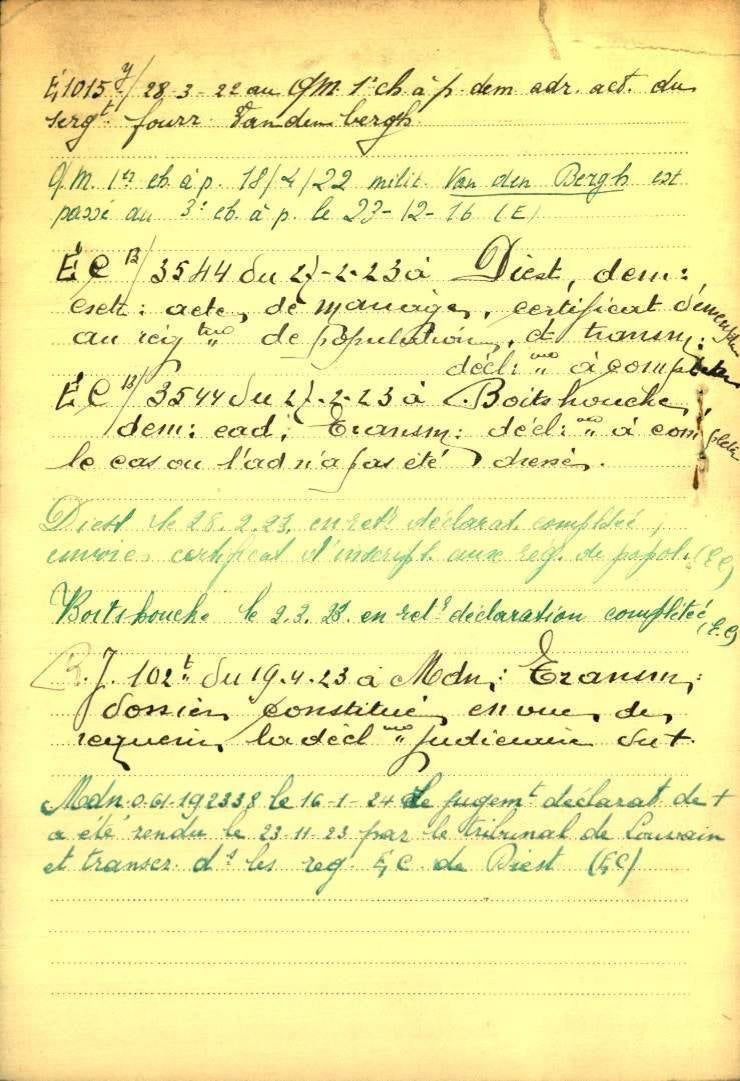 E, 1015 y/ 28-3-22 au QM. 1r ch. à p. dem adr. act. du
sergt fourr. Vandenbergh.
Q.M. 1er ch. à p. 18/4/22 milit. Van den Bergh est
passé au 3e ch. à p. le 23-12-16 (E)
É C 13/ 3544 du 27-2-23 à Diest, dem:
extr: acte, de mariage, certificat
au reg tres de Population, et transm:
décl: on à compléter
É C 13/ 3544 du 27-2-23 à Boitshouche,
dem: ead, Transm: décl: on à compléter
le cas où l'ad n'a pas été dressé.
Diest le 28.2.23. en retr déclarat. complétée,
envoie certificat d'inscript. aux rég. de popul. (EC)
Boitshouche le 2.3.23. en retr déclaration complétée (E.C)
R.J. 102t du 19.4.23 à Mdn: Transm:
dossier constitué, en vue, de
requérir, la décl on judiciaire du +.
Mdn. 0.61-192338 le 16-1-24 le jugemt déclarat. de +
a été rendu le 23-11-23 par le tribunal de Louvain
et transcr. ds les reg. E,C de Diest (E,C)